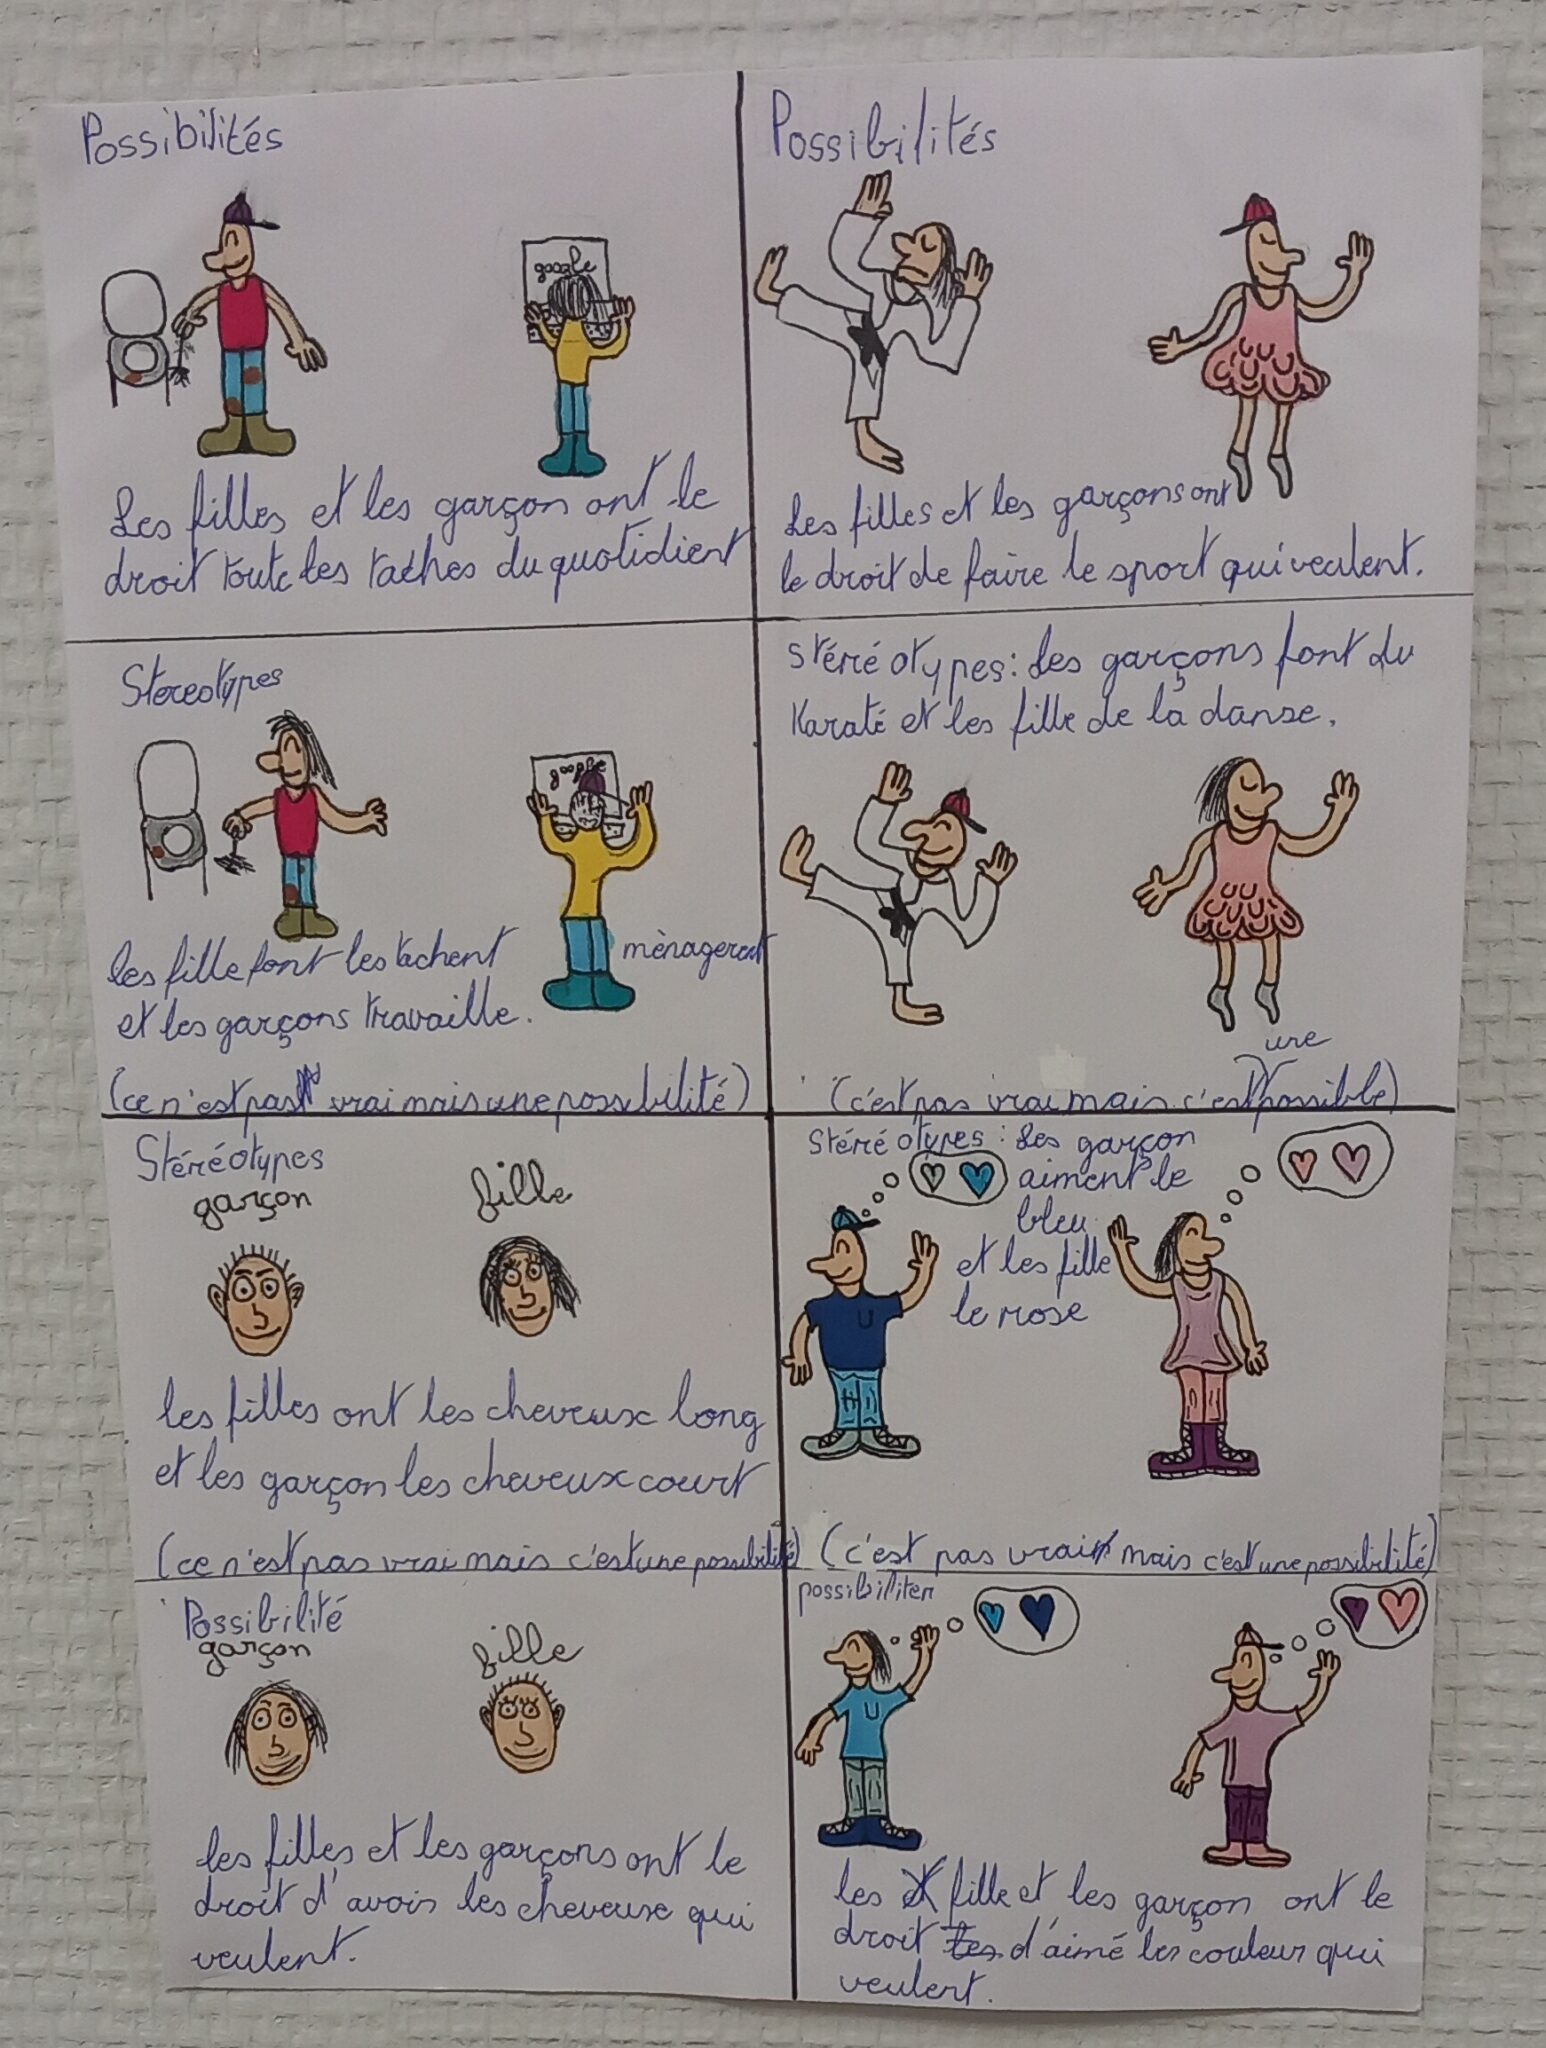 Possibilités
google
Les filles et les garçon ont le
droit toute les taches du quotidient
Possibilités
Les filles et les garçons ont
le droit de faire le sport qui veulent.
Stereotypes
google
les fille font les tachent
ménagerent
et les garçons travaille.
(ce n'est pas vrai mais une possibilité)
Stéréotypes: Les garçons font du
Karaté et les fille de la danse.
une
(c'est pas vrai mais c'est possible)
Stéréotypes
garçon fille
les filles ont les cheveux long
et les garçon les cheveux court
(ce n'est pas vrai mais c'est une possibilité)
Stéréotypes: Les garçon
aiment le
bleu
et les fille
le rose
(c'est pas vrai mais c'est une possibilité)
Possibilité
garçon fille
les filles et les garçons ont le
droit d'avoir les cheveux qui
veulent.
possibiliter
les fille et les garçon ont le
droit d'aimé les couleur qui
veulent.